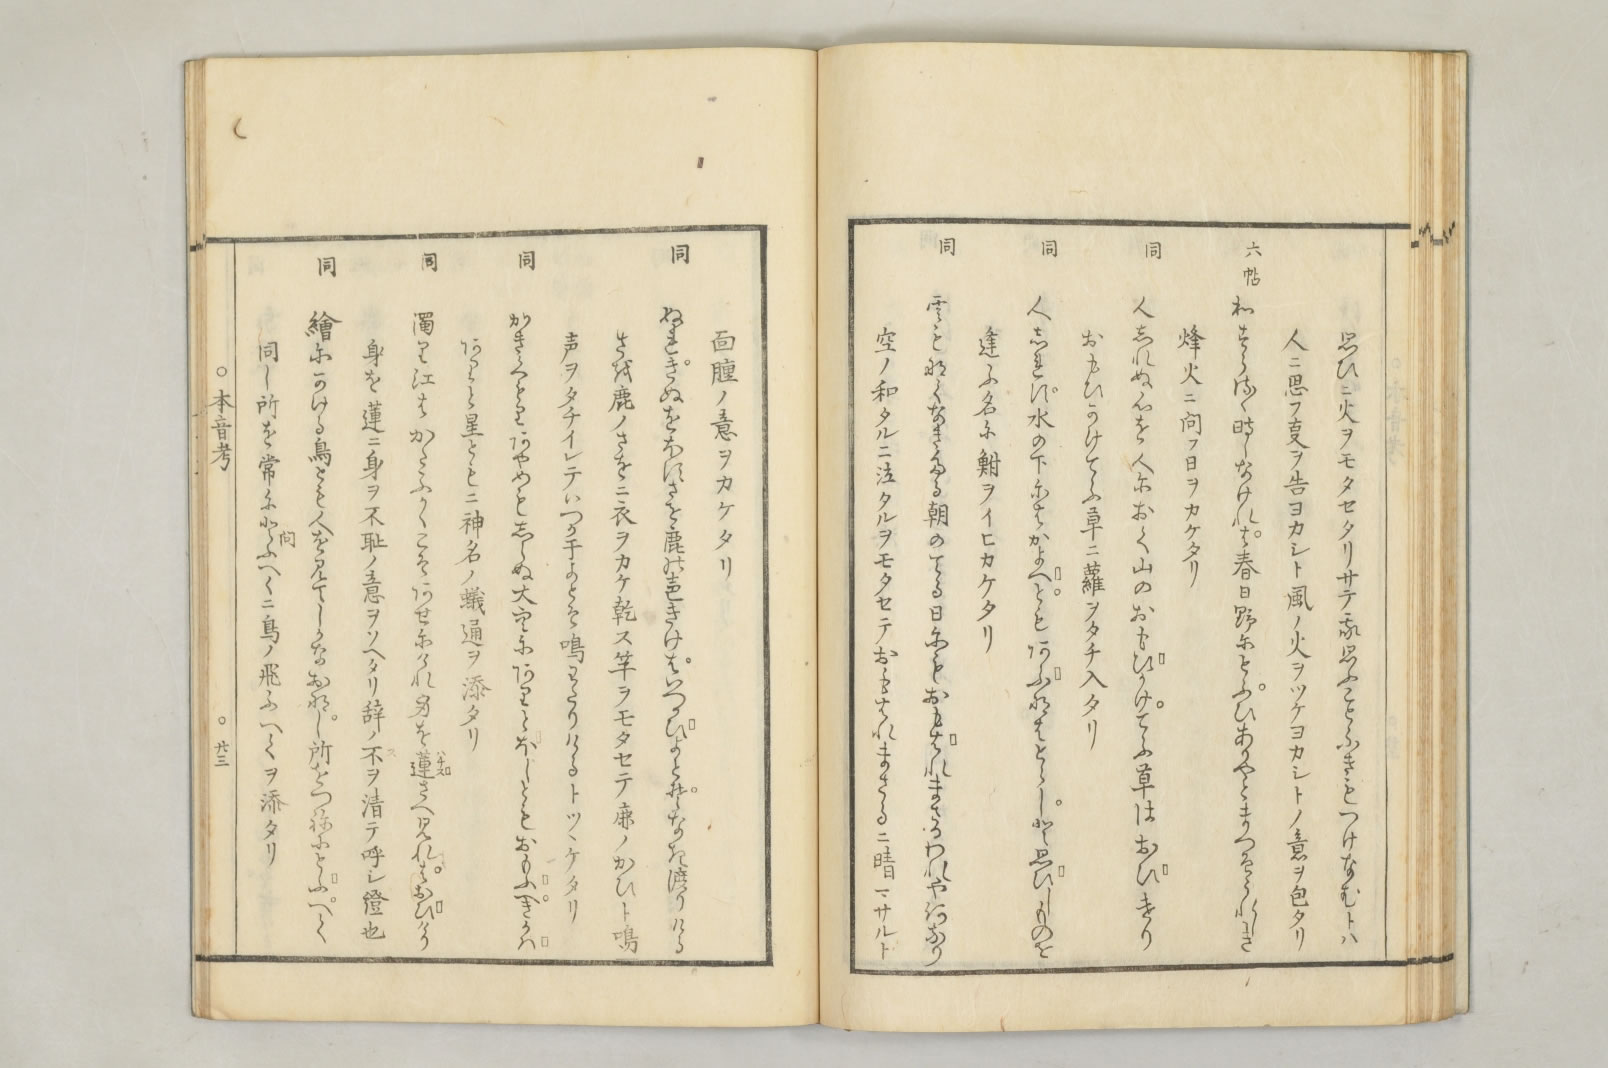 思ひニ火ヲモタセタリサテ我思ふことふきもつけなむトハ
人ニ思フ夏ヲ告ヨカシト風ノ火ヲツケヨカシトノ意ヲ包タリ
六帖
春日野にとふひ
烽火ニ問フ日ヲカケタリ
同
人しれぬ心を人におく山のおもひかけてふ草はおひけり
おもひかけてふ草ニ蘿ヲタチ入タリ
同
人しれす水の下にもかよへとも
思ひしものを
逢ふ名に鮒ヲイヒカケタリ
同
雲もなくなきたる朝のてる日にもおもはれまさるわれや何なり
空ノ和タルニ泣タルヲモタセテおもはれまさるニ晴マサルト
面腫ノ意ヲカケタリ
同
ぬれきぬをほすさを鹿の声きけはいつかひよとそなき渡りける
さを鹿ノさをニ衣ヲカケ乾ス竿ヲモタセテ鹿ノかひト鳴
声ヲタチイレテいつか干よとそ鳴わたりけるトツヽケタリ
同
かきくもりあやめもしらぬ大空にありとほしともおもふへきかは
ありと星ともニ神名ノ蟻通ヲ添タリ
同
濁り江は
身を蓮さへ見れは
身を蓮ニ身ヲ不耻ノ意ヲソヘタリ辞ノ不ヲ清テ呼シ證也
同
繪にかける鳥とも人を見てしかなおなし所をつねにとふへく
同し所を常にとふへくニ鳥ノ飛ふへくヲ添タリ
問
○本音考
○廿三